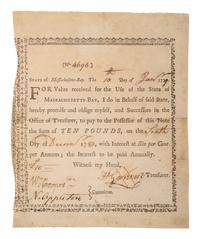 No. 4696
STATE of Massachusetts-Bay. The 10th Day of Jan.
FOR Value received for the Use of the State of
MASSACHUSETTS-BAY, I do in Behalf of said State,
hereby promise and oblige myself, and Successors in the
Office of Treasurer, to pay to the Possessor of this Note
the sum of TEN POUNDS, on the Tenth
Day of 178 with Interest at Six per Cent.
per Annum; the Interest to be paid Annually.
Witness my Hand,
Treasurer.
N. Appleton
Committee.